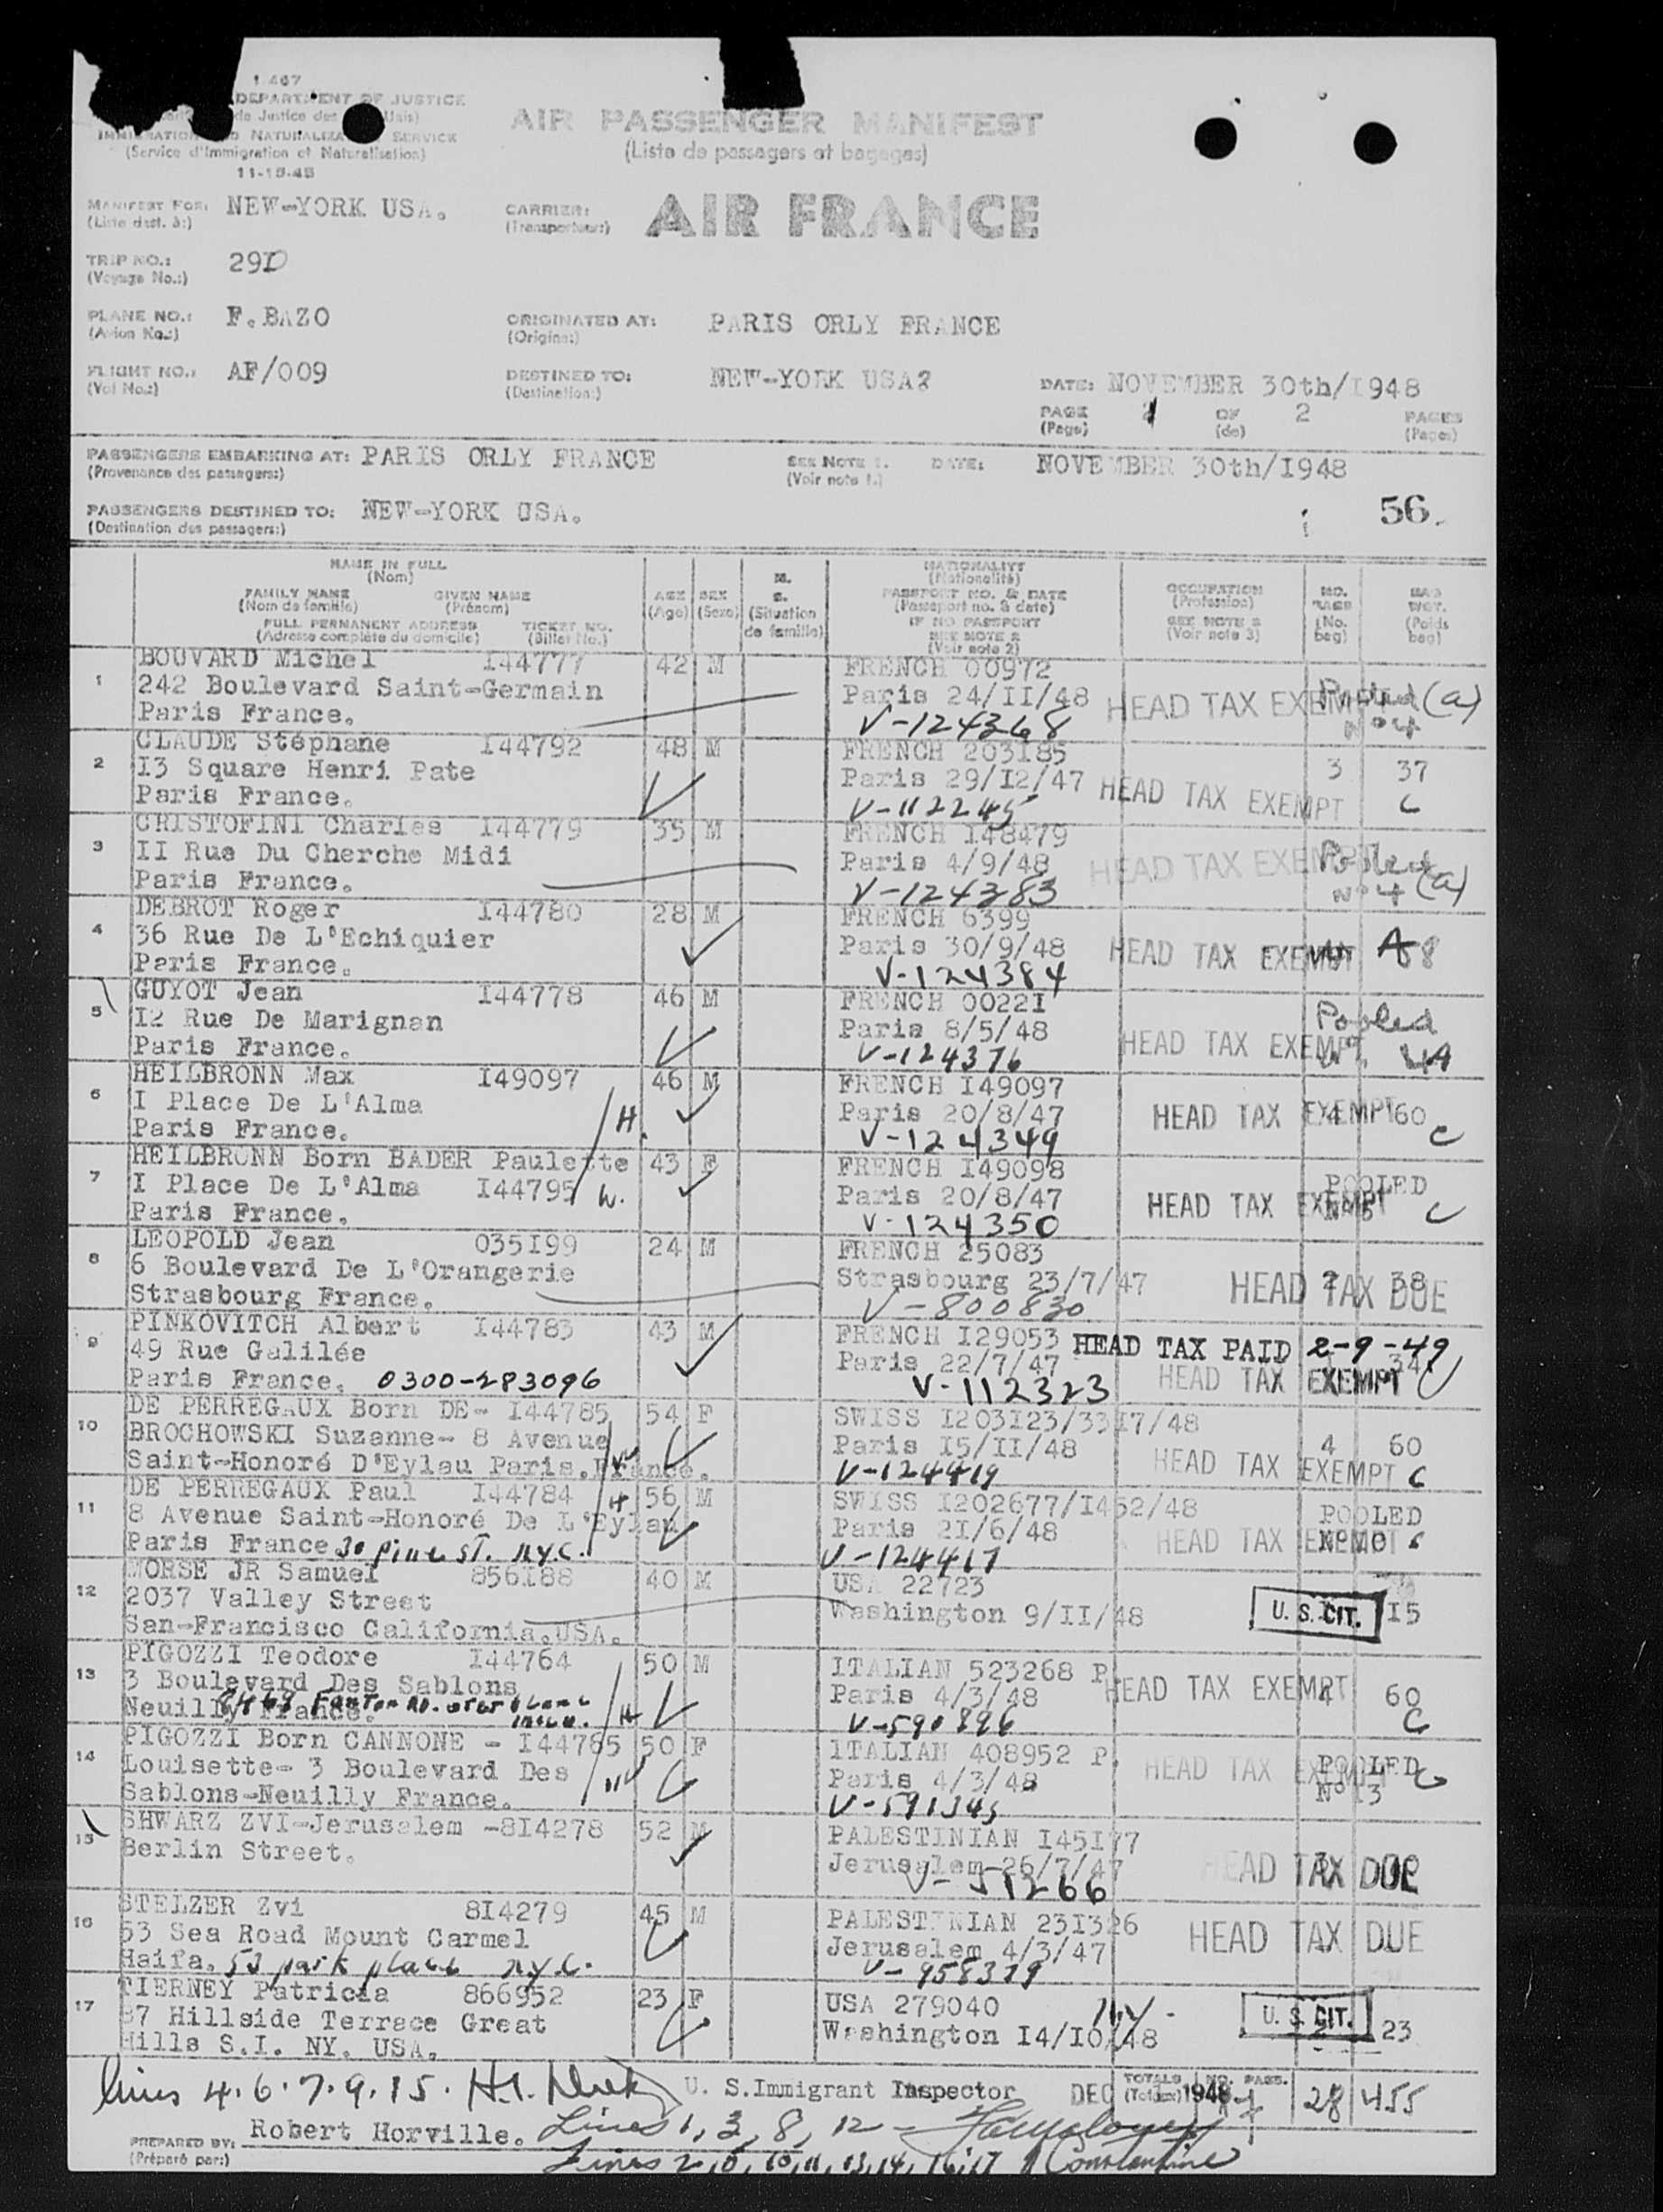 1-467
DEPARTMENT OF JUSTICE
de Justice des Unis)
IMMIGRATION AND NATURALIZATION SERVICE
(Service d'Immigration et Naturalisation)
11-15-45
AIR PASSENGER MANIFEST
(Liste de passagers et bagages)
MANIFEST FOR: NEW-YORK USA.
(Liste dest. à:)
CARRIER: AIR FRANCE
(Transporteur:)
TRIP NO.: 29D
(Voyage No.:)
PLANE NO.: F.BAZO
(Avion No.:)
ORIGINATED AT: PARIS ORLY FRANCE
(Origine:)
FLIGHT NO.: AF/009
(Vol No.:)
DESTINED TO: NEW-YORK USA?
(Destination:)
DATE: NOVEMBER 30th/I948
PAGE OF 2 PAGES
(Page) (de) (Pages)
PASSENGERS EMBARKING AT: PARIS ORLY FRANCE SEE NOTE 1. DATE: NOVEMBER 30th/I948
(Provenance des passagers:) (Voir note 1.)
PASSENGERS DESTINED TO: NEW-YORK USA. 56.
(Destination des passagers:)
NAME IN FULL
(Nom)
FAMILY NAME GIVEN NAME
(Nom de famille) (Prénom)
FULL PERMANENT ADDRESS TICKET NO.
(Adresse complète du domicile) (Billet No.)
AGE SEX M. S.
(Age) (Sexe) (Situation de famille)
NATIONALITY
(Nationalité)
PASSPORT NO. & DATE
(Passeport no. & date)
IF NO PASSPORT
SEE NOTE 2
(Voir note 2)
OCCUPATION
(Profession)
SEE NOTE 3
(Voir note 3)
NO. BAGS
(No. bag)
BAG WGT.
(Poids bag)
1 BOUVARD Michel I44777 42 M FRENCH 00972
242 Boulevard Saint-Germain Paris 24/II/48 HEAD TAX EXEMPT Pooled (a)
Paris France. V-124368 N° 4
2 CLAUDE Stéphane I44792 48 M FRENCH 203I85
I3 Square Henri Pate Paris 29/I2/47 HEAD TAX EXEMPT 3 37
Paris France. V-112245 C
3 CRISTOFINI Charles I44779 35 M FRENCH I48479
II Rue Du Cherche Midi Paris 4/9/48 HEAD TAX EXEMPT Pooled
Paris France. V-124383 N° 4 (a)
4 DEBROT Roger I44780 28 M FRENCH 6399
36 Rue De L'Echiquier Paris 30/9/48 HEAD TAX EXEMPT
Paris France. V-124384
5 GUYOT Jean I44778 46 M FRENCH 0022I
I2 Rue De Marignan Paris 8/5/48 HEAD TAX EXEMPT Pooled
Paris France. V-124376
6 HEILBRONN Max I49097 46 M FRENCH I49097
I Place De L'Alma H. Paris 20/8/47 HEAD TAX EXEMPT 4 60
Paris France. V-124349 C
7 HEILBRONN Born BADER Paulette 43 F FRENCH I49098
I Place De L'Alma I44795 W. Paris 20/8/47 HEAD TAX EXEMPT POOLED
Paris France. V-124350 C
8 LEOPOLD Jean 035I99 24 M FRENCH 25083
6 Boulevard De L'Orangerie Strasbourg 23/7/47 HEAD TAX DUE 2 38
Strasbourg France. V-800830
9 PINKOVITCH Albert I44783 43 M FRENCH I29053 HEAD TAX PAID 2-9-49
49 Rue Galilée Paris 22/7/47 HEAD TAX EXEMPT 34
Paris France. 0300-283096 V-112323
10 DE PERREGAUX Born DE- I44785 54 F SWISS I203I23/33I7/48
BROCHOWSKI Suzanne- 8 Avenue Paris I5/II/48 HEAD TAX EXEMPT 4 60
Saint-Honoré D'Eylau Paris.France. V-124419 C
11 DE PERREGAUX Paul I44784 H 56 M SWISS I202677/I452/48
8 Avenue Saint-Honoré De L'Eylau Paris 2I/6/48 HEAD TAX EXEMPT POOLED
Paris France 30 pine ST. N.Y.C. V-124417 N° 10 C
12 MORSE JR Samuel 856I88 40 M USA 22723
2037 Valley Street Washington 9/II/48 U. S. CIT. I5
San-Francisco California.USA.
13 PIGOZZI Teodore I44764 50 M ITALIAN 523268 P.
3 Boulevard Des Sablons Paris 4/3/48 HEAD TAX EXEMPT 4 60
Neuilly France. H V-590896 C
14 PIGOZZI Born CANNONE - I44765 50 F ITALIAN 408952 P.
Louisette- 3 Boulevard Des W Paris 4/3/48 HEAD TAX EXEMPT POOLED C
Sablons-Neuilly France. V-591345 N° 13
15 SHWARZ ZVI-Jerusalem -8I4278 52 M PALESTINIAN I45I77
Berlin Street. Jerusalem-26/7/47 HEAD TAX DUE
V-51266
16 STELZER Zvi 8I4279 45 M PALESTINIAN 23I326
53 Sea Road Mount Carmel Jerusalem 4/3/47 HEAD TAX DUE
Haifa. 53 park place N.Y.C. V-958379
17 TIERNEY Patricia 866952 23 F USA 279040 N.Y.
87 Hillside Terrace Great Washington I4/I0/48 U. S. CIT. 23
Hills S.I. NY. USA.
lines 4.6.7.9.15. U. S.Immigrant Inspector DEC 1 1948 TOTALS NO. PASS. 17 28 455
(Totaux)
PREPARED BY: Robert Horville. Lines 1, 3, 8, 12
(Préparé par:) Lines 2, 5, 10, 11, 13, 14, 16, 17 Constantine